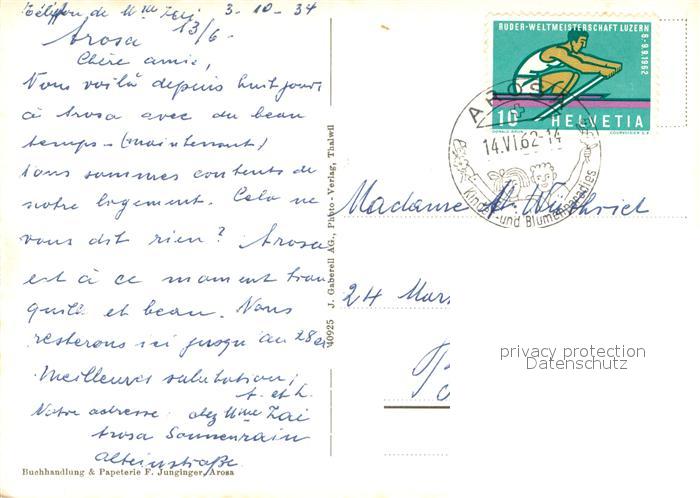 Téléphon de Mme Zai 3-10-34
Arosa 13/6-
Chère amie,
Nous voilà depuis huit jours
à Arosa avec du beau
temps - (maintenant)
tous sommes contents de
notre logement. Cela ne
vous dit rien? Arosa
est à ce moment tran
quille et beau. Nous
resterons ici jusqu'au 28 et
Meilleures salutations
A. et L.
Notre adresse: chez Mme Zai
Arosa Sonnenrain
Alteinstraße
Buchhandlung & Papeterie F. Junginger, Arosa
40925 J. Gaberell AG., Photo-Verlag, Thalwil
RUDER-WELTMEISTERSCHAFT LUZERN
6.-9.9.1962
10 HELVETIA
DONALD BRUN COURVOISIER S.A.
AROSA
14.VI.62-14
Kinder- und Blumenparadies
Madame M. Wüthrich
24 Mar
privacy protection
Datenschutz